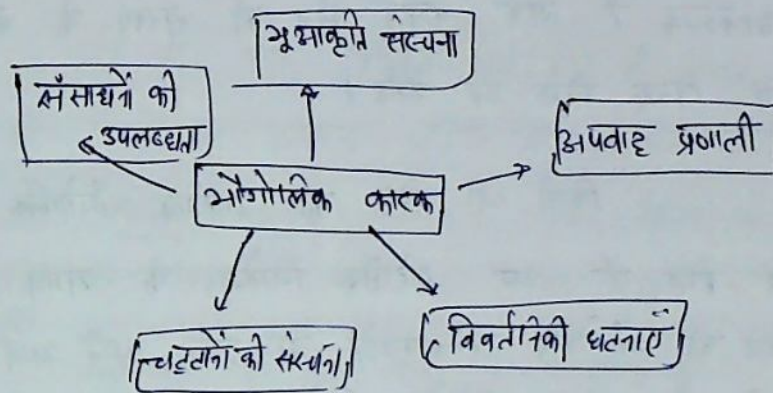 भूआकृति संरचना
संसाधनों की
उपलब्धता
अपवाह प्रणाली
भौगोलिक कारक
चट्टानों की संरचना
विवर्तनिकी घटनाएँ